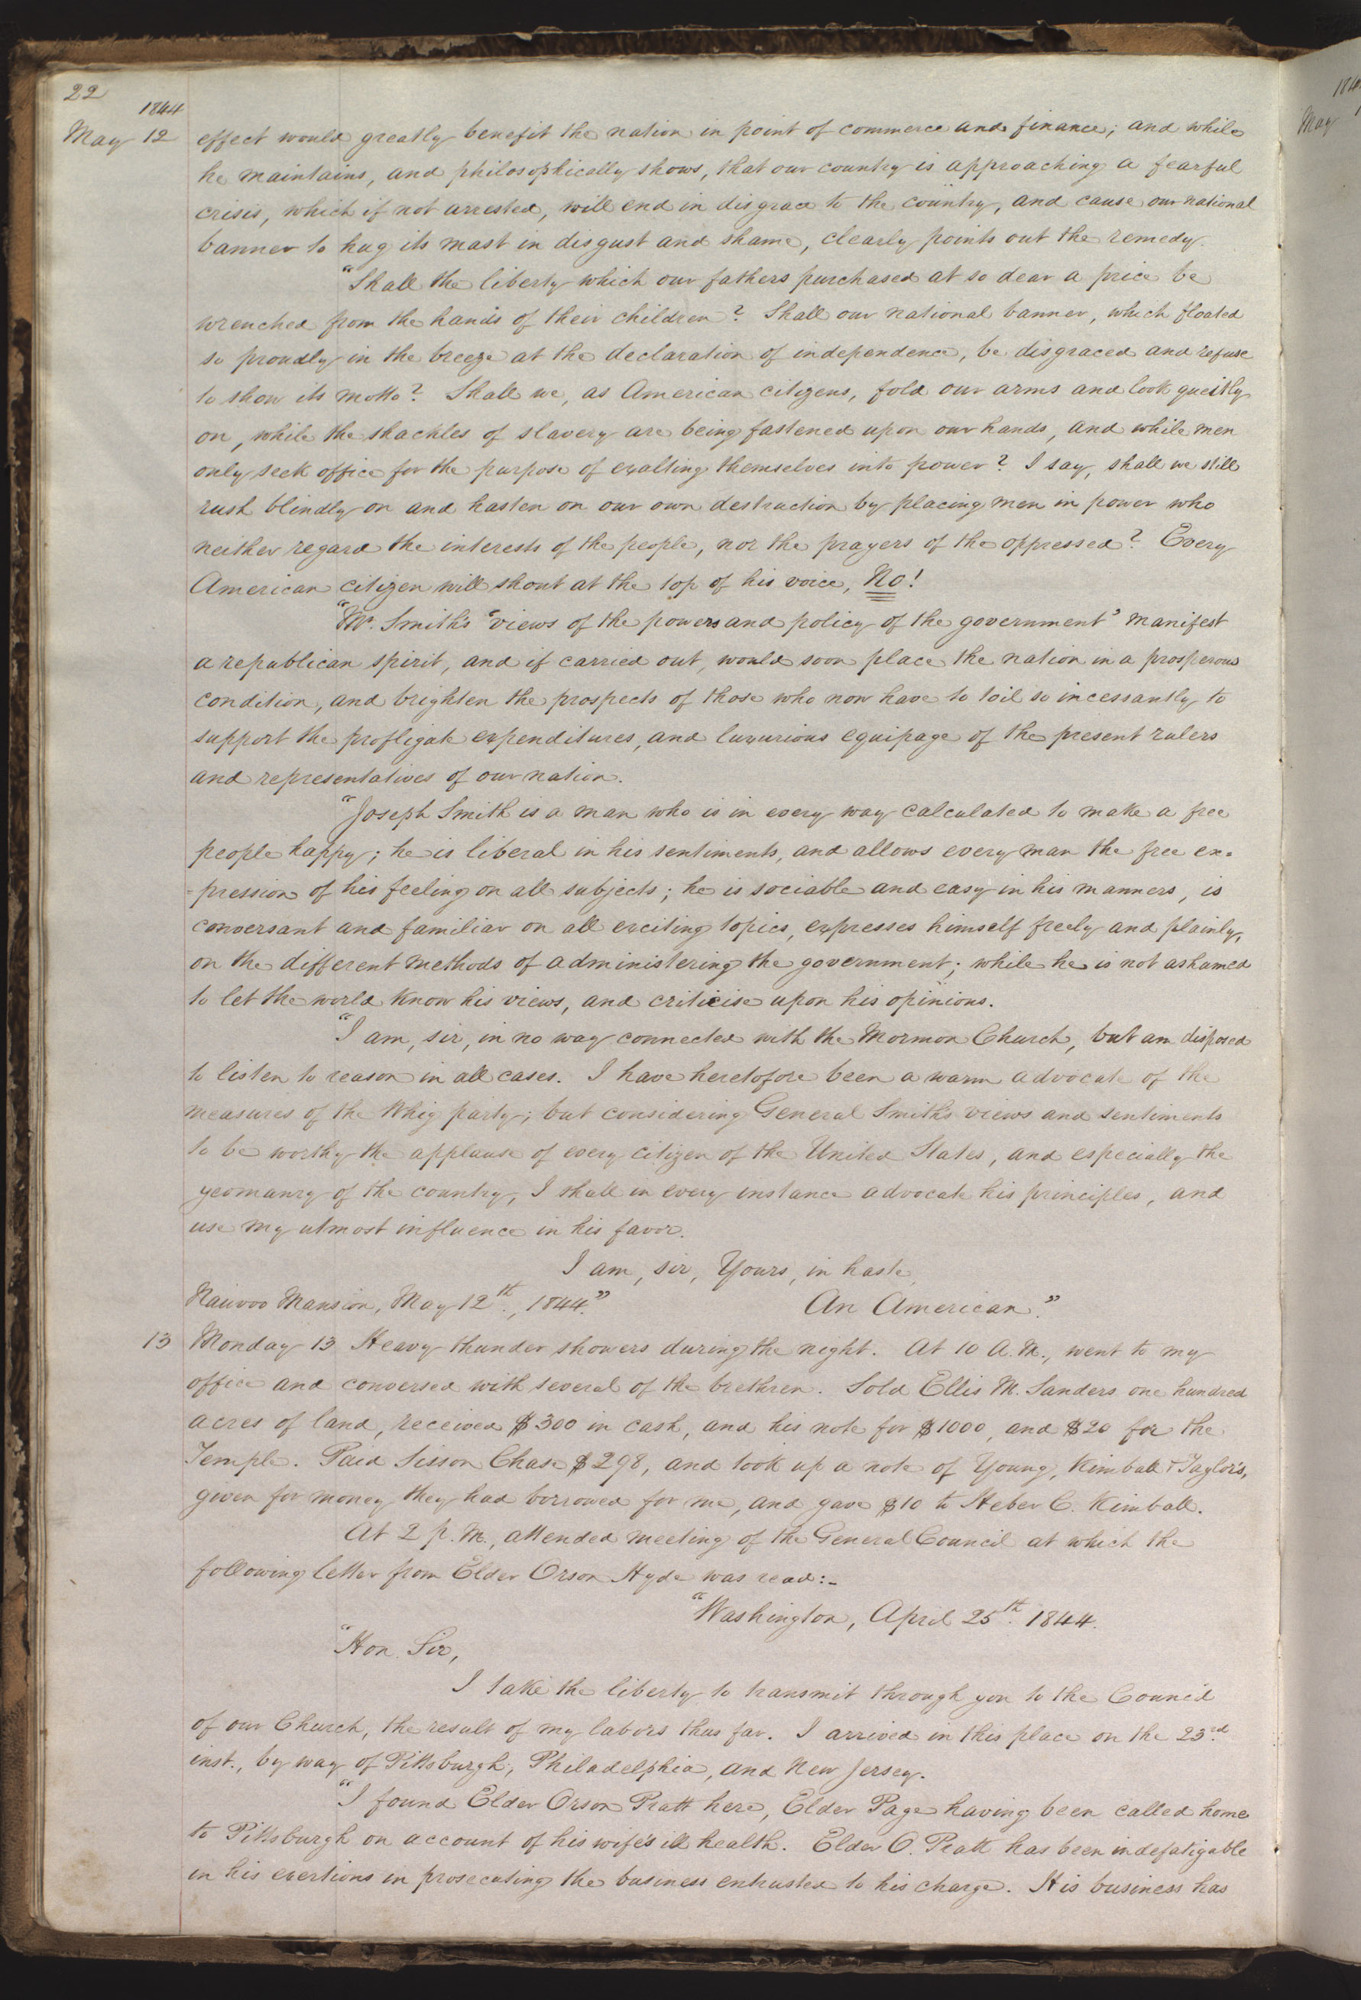 22
1844
May 12 effect would greatly benefit the nation in point of commerce and finance; and while
he maintains, and philosophically shows, that our country is approaching a fearful
crisis, which if not arrested, will end in disgrace to the country, and cause our national
banner to hug its mast in disgust and shame, clearly points out the remedy.
"Shall the liberty which our fathers purchased at so dear a price be
wrenched from the hands of their children? Shall our national banner, which floated
so proudly in the breeze at the declaration of independence, be disgraced and refuse
to show its motto? Shall we, as American citizens, fold our arms and look queitly
on, while the shackles of slavery are being fastened upon our hands, and while men
only seek office for the purpose of exalting themselves into power? I say, shall we still
rush blindly on and hasten on our own destruction by placing men in power who
neither regard the interests of the people, nor the prayers of the oppressed? Every
American citizen will shout at the top of his voice, No!
"Mr. Smith's "views of the powers and policy of the government" manifest
a republican spirit, and if carried out, would soon place the nation in a prosperous
condition, and brighten the prospects of those who now have to toil so incessantly to
support the profligate expenditures, and luxurious equipage of the present rulers
and representatives of our nation.
"Joseph Smith is a man who is in every way calculated to make a free
people happy; he is liberal in his sentiments, and allows every man the free ex=
=pression of his feeling on all subjects; he is sociable and easy in his manners, is
conversant and familiar on all exciting topics, expresses himself freely and plainly,
on the different methods of administering the government; while he is not ashamed
to let the world know his views, and criticise upon his opinions.
"I am, sir, in no way connected with the Mormon Church, but am disposed
to listen to reason in all cases. I have heretofore been a warm advocate of the
measures of the Whig party; but considering General Smith's views and sentiments
to be worthy the applause of every citizen of the United States, and especially the
yeomanry of the country, I shall in every instance advocate his principles, and
use my utmost influence in his favor.
I am, sir, Yours, in haste,
Nauvoo Mansion, May 12th., 1844." An American."
13 Monday 13 Heavy thunder showers during the night. At 10 A.M., went to my
office and conversed with several of the brethren. Sold Ellis M. Sanders one hundred
acres of land, received $300 in cash, and his note for $1000, and $20 for the
Temple. Paid Sisson Chase $298, and took up a note of Young, Kimball & Taylor's,
given for money they had borrowed for me, and gave $10 to Heber C. Kimball.
At 2 p.m., attended meeting of the General Council at which the
following letter from Elder Orson Hyde was read:-
"Washington, April 25th. 1844.
"Hon. Sir,
I take the liberty to transmit through you to the Council
of our Church, the result of my labors thus far. I arrived in this place on the 23rd.
inst., by way of Pittsburgh, Philadelphia, and New Jersey.
"I found Elder Orson Pratt here, Elder Page having been called home
to Pittsburgh on account of his wife's ill health. Elder O. Pratt has been indefatigable
in his exertions in prosecuting the business entrusted to his charge. His business has
184
May 1